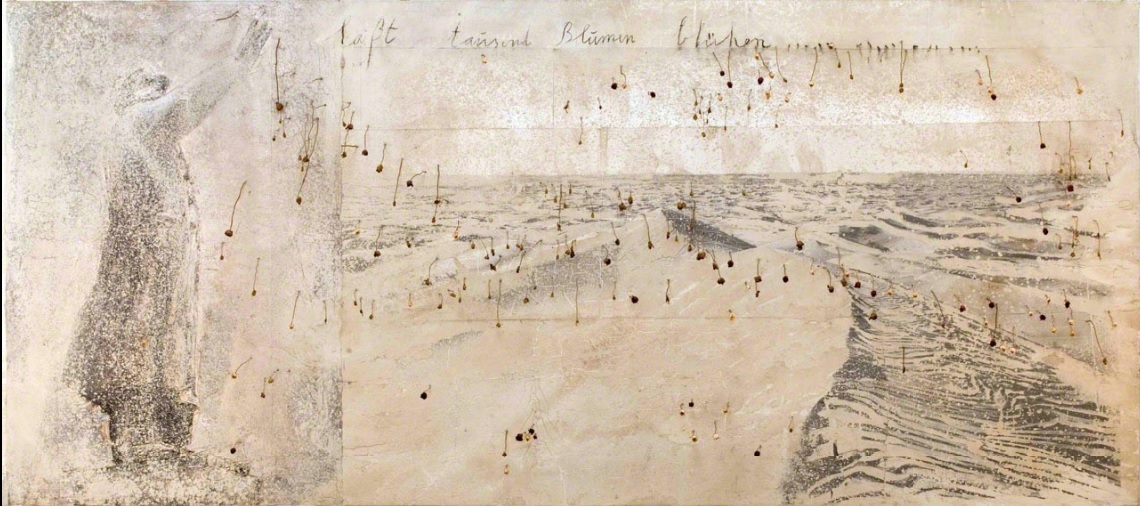 laßt tausend Blumen blühen